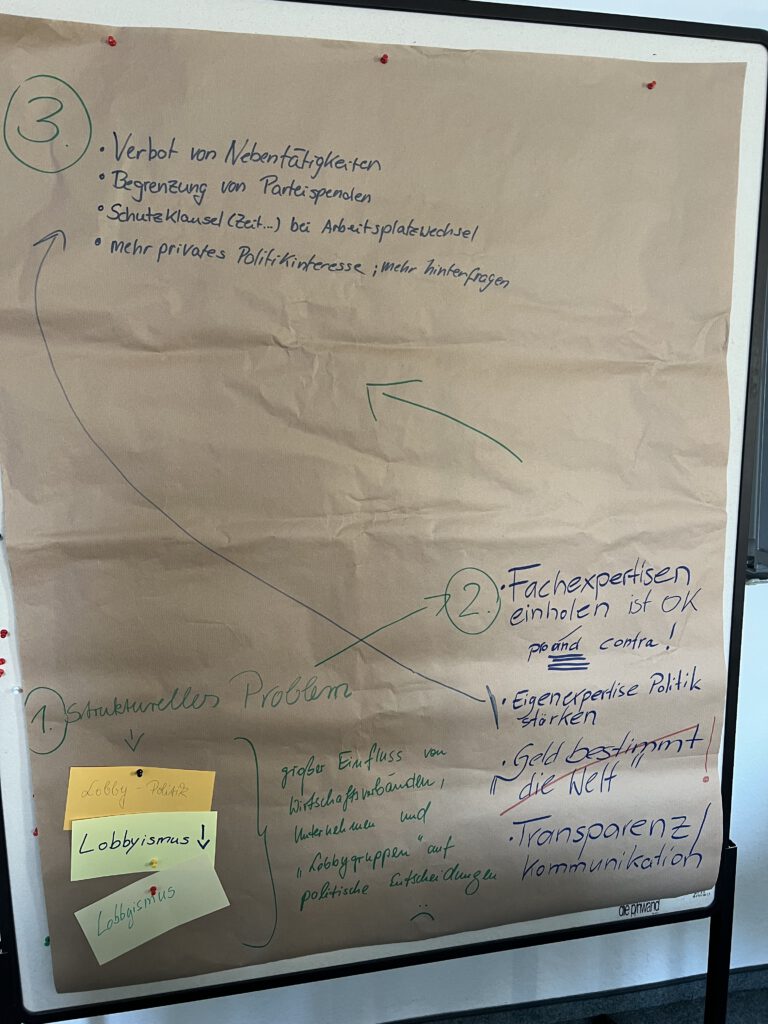 3.
• Verbot von Nebentätigkeiten
• Begrenzung von Parteispenden
• Schutzklausel (Zeit...) bei Arbeitsplatzwechsel
• mehr privates Politikinteresse ; mehr hinterfragen
1. Strukturelles Problem
Lobby - Politik
Lobbyismus ↓
Lobbyismus
großer Einfluss von
Wirtschaftsverbänden,
Unternehmen und
„Lobbygruppen" auf
politische Entscheidungen
2.
• Fachexpertisen
einholen ist OK
pro und contra!
• Eigenexpertise Politik
stärken
• Geld bestimmt
die Welt !
• Transparenz/
Kommunikation
die pinwand